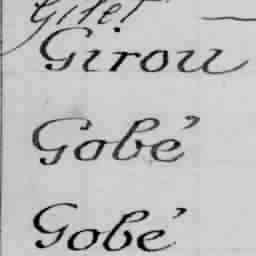 Gilet
Girou
Gobé
Gobé